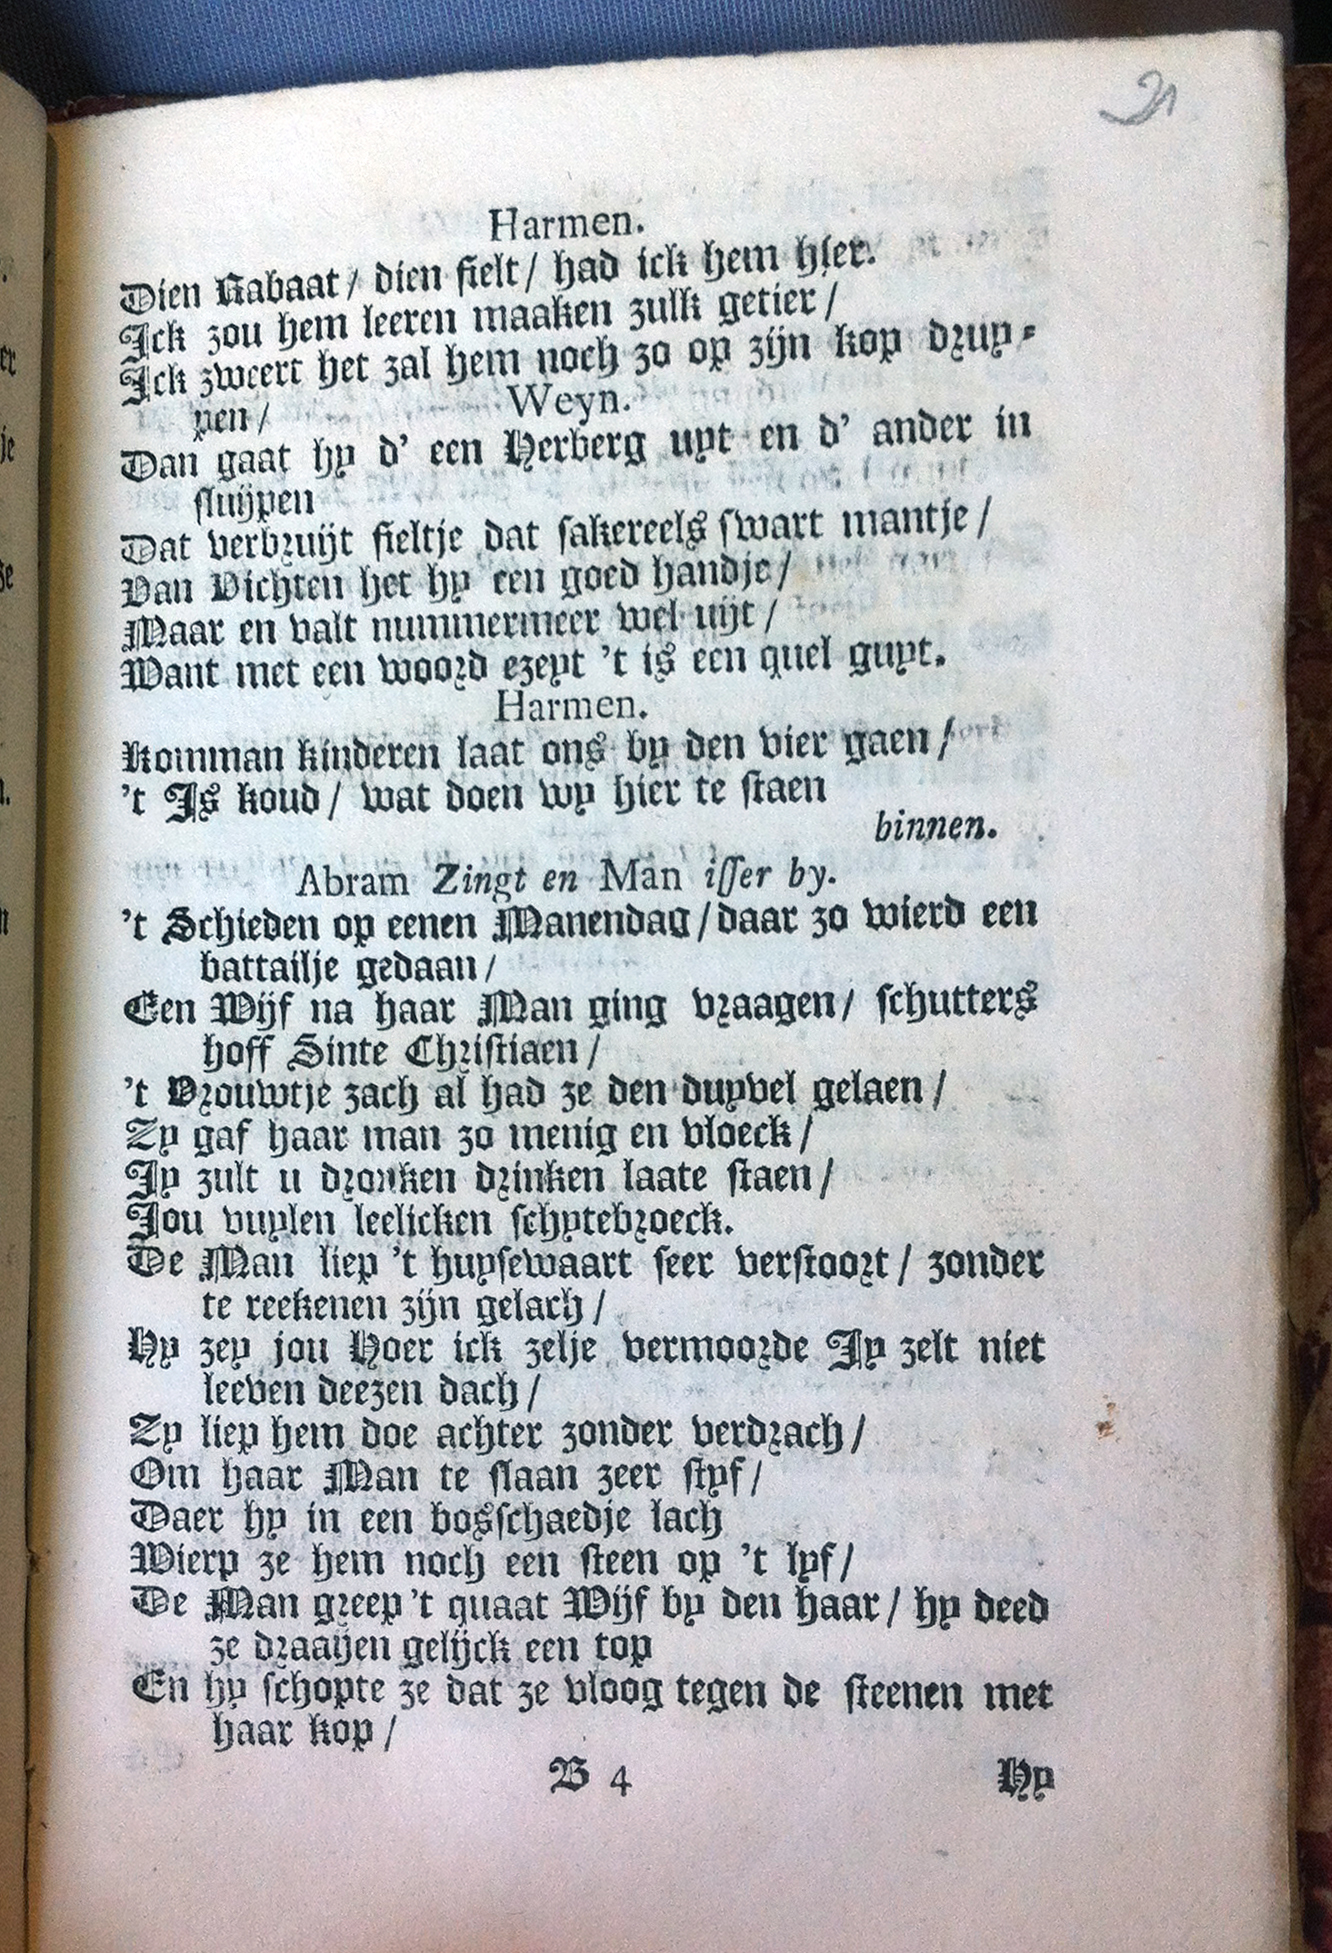 21
Harmen.
Dien Rabaat / dien fielt / had ick hem hier.
Ick zou hem leeren maaken zulk getier /
Ick zweert het zal hem noch zo op zijn kop druy-
pen /
Weyn.
Dan gaat hy d' een Herberg uyt en d' ander in
sluijpen
Dat verbruijt fieltje dat sakereels swart mantje /
Van Vichten het hy een goed handje /
Maar en valt nummermeer wel uijt /
Want met een woord ezeyt 't is een quel guyt.
Harmen.
Komman kinderen laat ons by den vier gaen /
't Is koud / wat doen wy hier te staen
binnen.
Abram Zingt en Man isser by.
't Schieden op eenen Manendag / daar zo wierd een
battailje gedaan /
Een Wijf na haar Man ging vraagen / schutters
hoff Sinte Christiaen /
't Vrouwtje zach al had ze den duyvel gelaen /
Zy gaf haar man zo menig en vloeck /
Jy zult u dronken drinken laate staen /
Jou vuylen leelicken schytebroeck.
De Man liep 't huysewaart seer verstoort / zonder
te reekenen zijn gelach /
Hy zey jou Hoer ick zelje vermoorde Jy zelt niet
leeven deezen dach /
Zy liep hem doe achter zonder verdrach /
Om haar Man te slaan zeer styf /
Daer hy in een bosschaedje lach
Wierp ze hem noch een steen op 't lyf /
De Man greep 't quaat Wijf by den haar / hy deed
ze draaijen gelijck een top
En hy schopte ze dat ze vloog tegen de steenen met
haar kop /
B 4
Hy